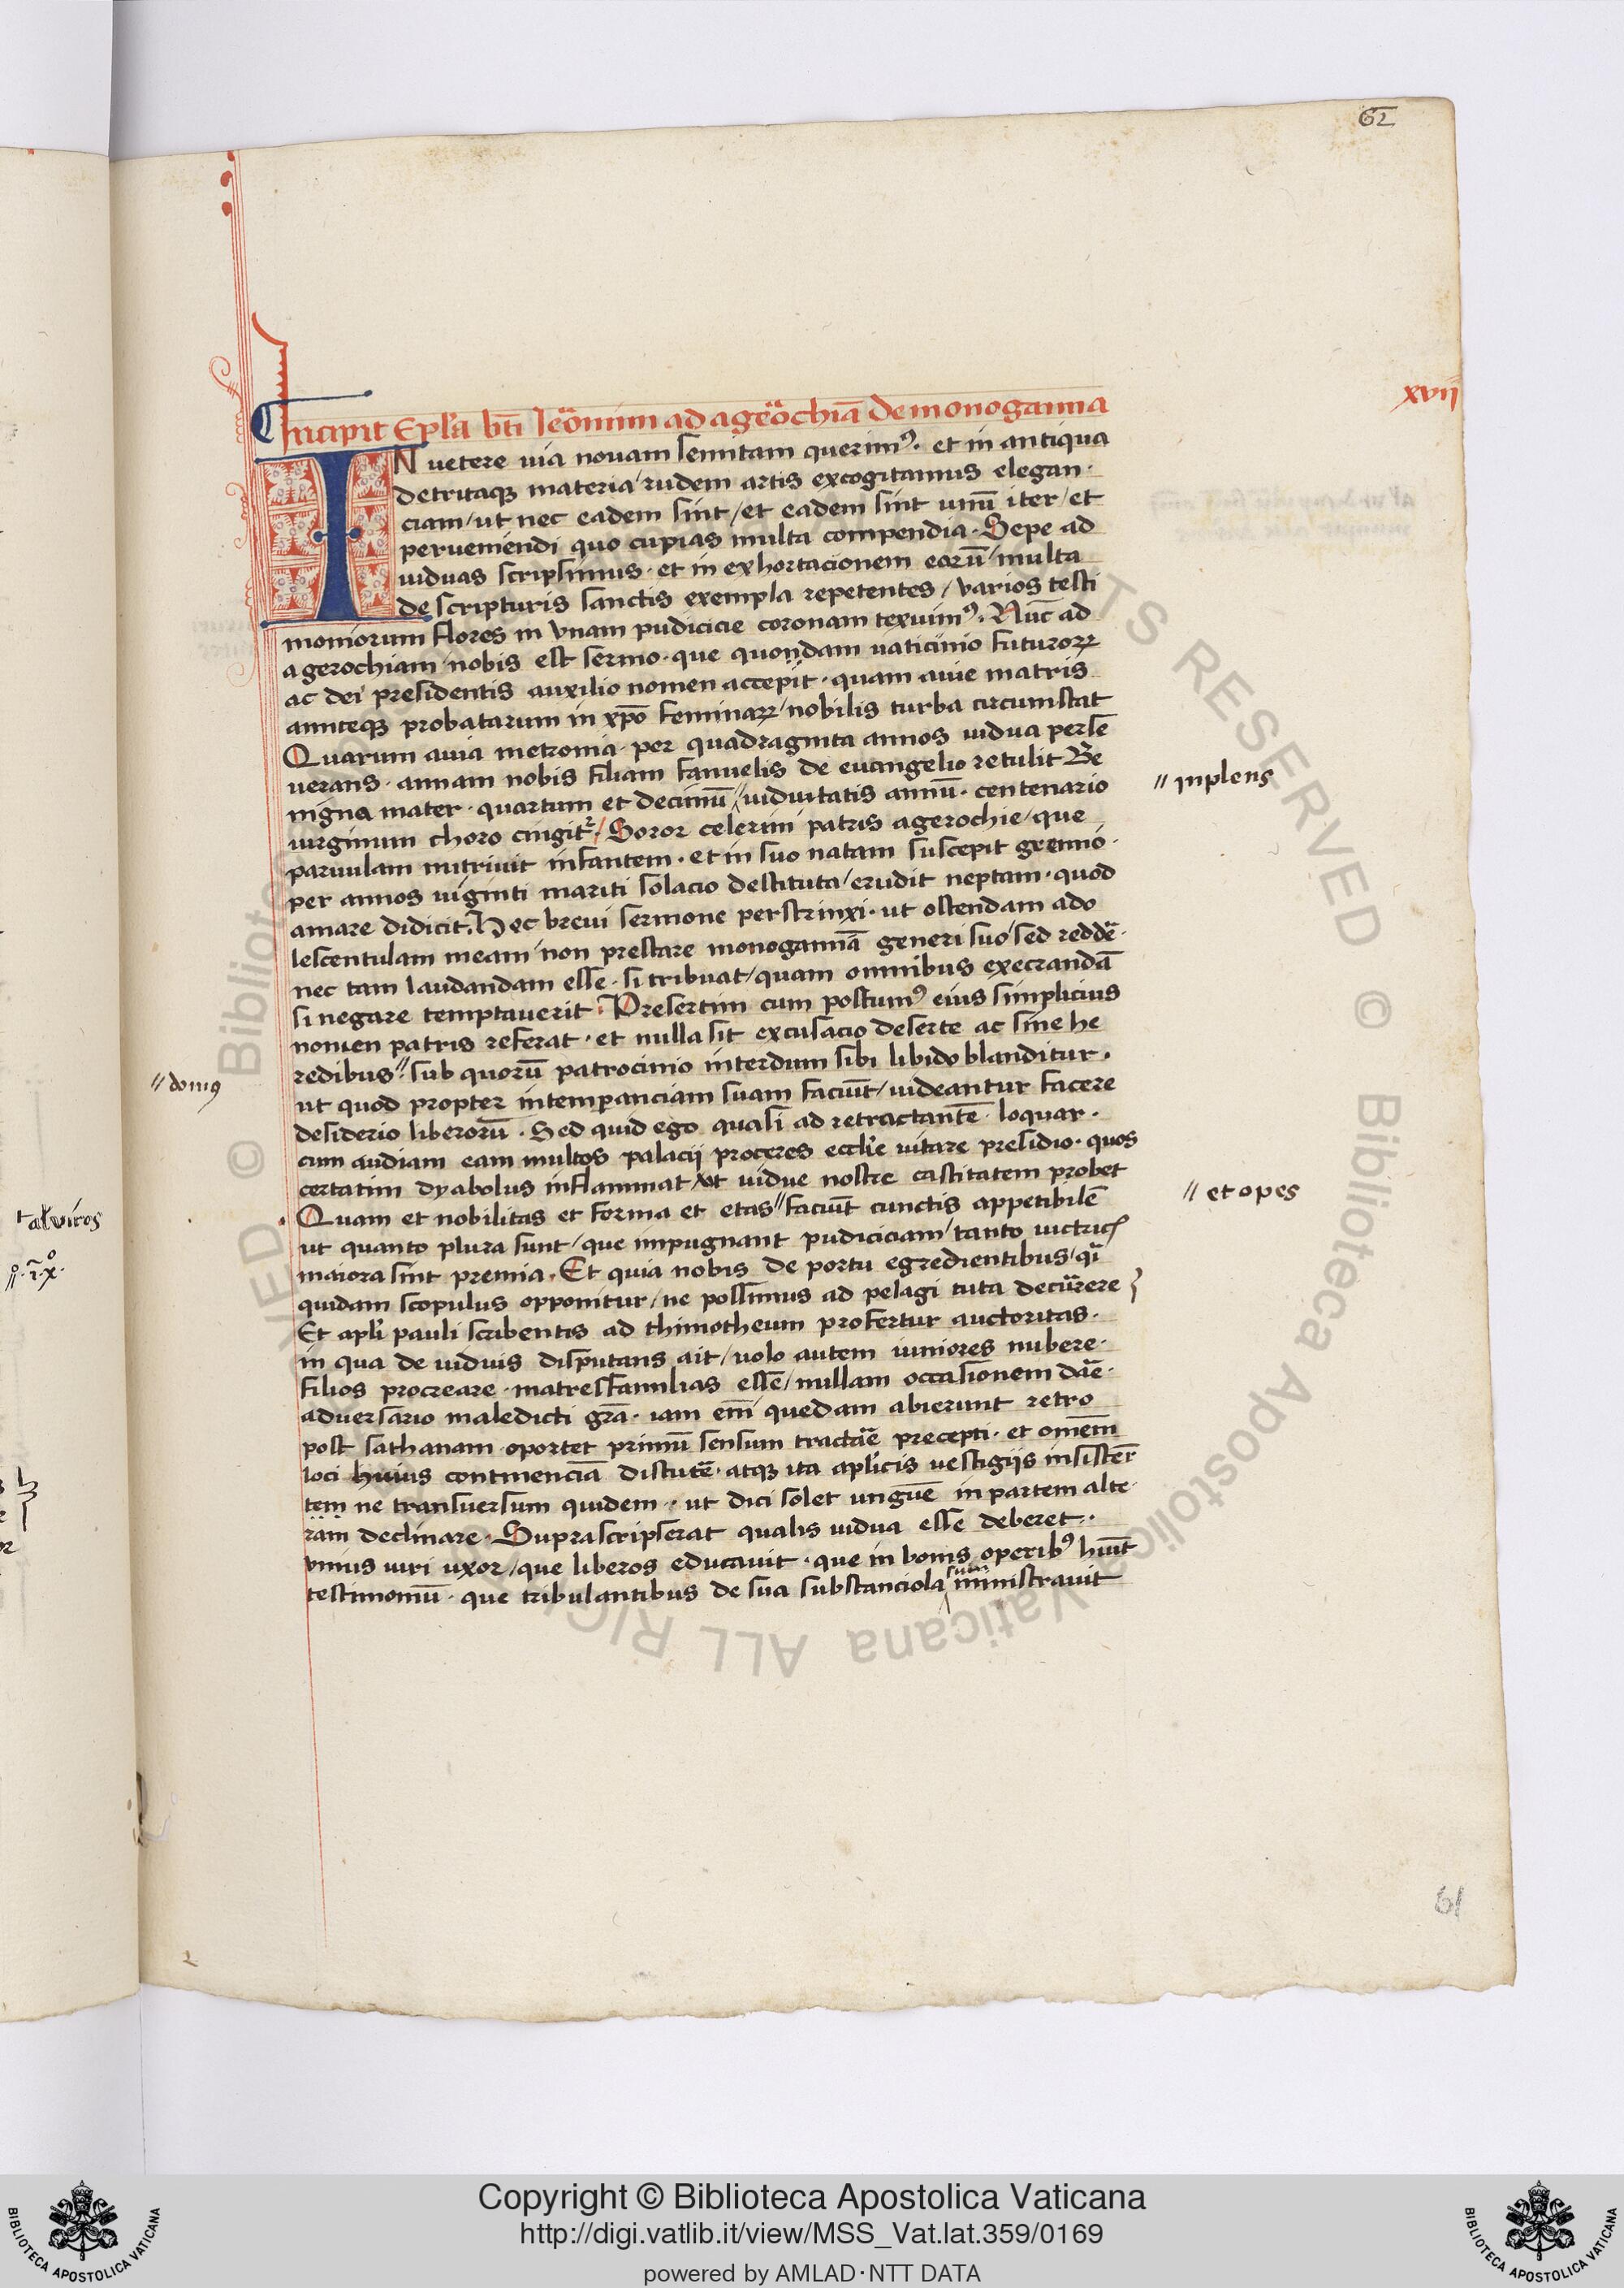 62
xvij
Incipit Epl'a bti Jeronimi ad agerochiā de monogamia
IN vetere via novam semitam querim9. et in antiqua
detritaq3 materia/ rudem artis excogitamus elegan-
ciam/ ut nec eadem sint/ et eadem sint unū iter/ et
perveniendi quo cupias multa compendia. Sepe ad
viduas scripsimus. et in exhortacionem earū/ multa
de scripturis sanctis exempla repetentes/ varios testi
moniorum flores in vnam pudicicie coronam texuim9. Nūc ad
agerochiam nobis est sermo. que quondam vaticinio futuroꝝ
ac dei presidentis auxilio nomen accepit. quam avie matris
amiteq3 probatarum in xpō feminaꝝ/ nobilis turba circumstat
Quarum avia metronia. per quadraginta annos vidua perse
verans. annam nobis filiam fanuelis de evangelio retulit Be
nigna mater. quartum et decimū // viduitatis annū. centenario
// inplens
virginum choro cingitr/ Soror celerini patris agerochie/ que
parvulam nutrivit infantem. et in suo natam suscepit gremio.
per annos viginti mariti solacio destituta/ erudit neptam. quod
amare didicit. Hec brevi sermone perstrinxi. ut ostendam ado
lescentulam meam/ non prestare monogamiā generi suo/ sed reddēr.
nec tam laudandam esse. si tribuat/ quam omnibus execrandā
si negare temptaverit. Presertim cum postum9 eius simplicius
nomen patris referat. et nulla sit excusacio deserte ac sine he
redibus // sub quorū patrocinio interdum sibi libido blanditur.
// dom9
ut quod propter intemperanciam suam faciūt/ videantur facere
desiderio liberorū. Sed quid ego quasi ad retractantē loquar.
cum audiam eam multos palacij proceres eccl'ie vitare presidio. quos
certatim dyabolus inflammat/ ut vidue nostre castitatem probet
Quam et nobilitas et forma et etas // faciūt cunctis appetibilē
// et opes
ut quanto plura sunt/ que impugnant pudiciciam/ tanto victrici
maiora sint premia. Et quia nobis de portu egredientibus/ qi
quidam scopulus opponitur/ ne possimus ad pelagi tuta decurrere
Et apl'i pauli scribentis ad thimotheum profertur auctoritas.
in qua de viduis disputans ait/ volo autem iuniores nubere.
filios procreare. matresfamilias esse/ nullam occasionem dare.
adversario maledicti grā. iam em̄ quedam abierunt retro
post sathanam oportet primū sensum tractāe precepti. et omēm
loci huius continenciā discutē. atq3 ita apl'icis vestigijs insistēn
tem ne transversum quidem. ut dici solet unguē in partem alte
ram declinare. Supra scripserat qualis vidua esse deberet.
vnius viri vxor/ que liberos educavit. que in bonis operib9 hūit
testimoniū. que tribulantibus de sua substanciola suīm ministravit
t al' viros
61
Copyright © Biblioteca Apostolica Vaticana
http://digi.vatlib.it/view/MSS_Vat.lat.359/0169
powered by AMLAD·NTT DATA
BIBLIOTECA APOSTOLICA VATICANA
BIBLIOTECA APOSTOLICA VATICANA